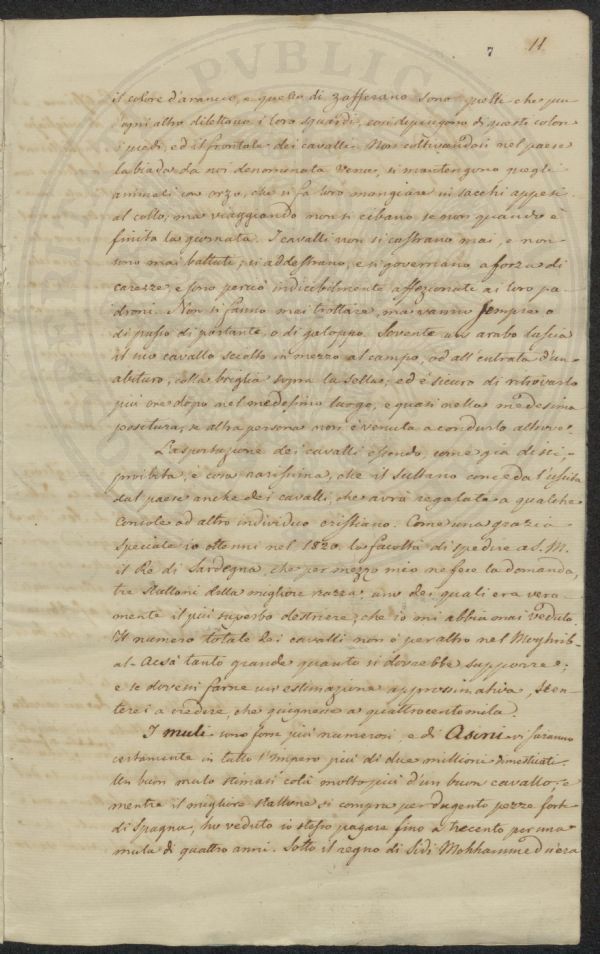 PVBLIC
7 11
il colore d'arancio, e quello di zafferano sono quelli che più
ogni altro dilettano i loro sguardi, così dipingono di questi colori
i piedi, ed il frontale dei cavalli. Non coltivandosi nel paese
la biada da noi denominata vena, si mantengono quegli
animali con orzo, che si fa loro mangiare in sacchi appesi
al collo, ma viaggiando non si cibano se non quando è
finita la giornata. I cavalli non si castrano mai, e non
sono mai battuti, si addestrano, e si governano a forza di
carezze, e sono perciò indicibilmente affezionati ai loro pa-
droni. Non si fanno mai trottare, ma vanno sempre o
di passo di portante, o di galoppo. Sovente un arabo lascia
il suo cavallo sciolto in mezzo al campo, od all'entrata d'un
abituro, colla briglia sopra la sella, ed è sicuro di ritrovarlo
più ore dopo nel medesimo luogo, e quasi nella medesima
positura, se altra persona non è venuta a condurlo altrove.
L'asportazione dei cavalli essendo, come già dissi,
proibita, è cosa rarissima, che il Sultano conceda l'uscita
dal paese anche dei cavalli, che avrà regalato a qualche
Console od altro individuo cristiano. Come una grazia
speciale io ottenni nel 1820 la facoltà di spedire a S. M.
il Re di Sardegna, che per mezzo mio ne fece la domanda,
tre Stalloni della migliore razza, uno dei quali era vera-
mente il più superbo destriere, che io mi abbia mai veduto.
Il numero totale dei cavalli non è per altro nel Moghrib-
al-Acsà tanto grande quanto si dovrebbe supporre;
e se dovessi farne un estimazione approssimativa, sten-
terei a credere, che giugnesse a quattrocentomila.
I muli sono forse più numerosi, e di Asini vi saranno
certamente in tutto l'Impero più di due millioni dimesticati.
Un buon mulo stimasi colà molto più d'un buon cavallo, e
mentre il migliore stallone si compra per dugento pezze forti
di Spagna, ho veduto io stesso pagare fino a trecento per una
mula di quattro anni. Sotto il regno di Sidi Mohhammed v'era